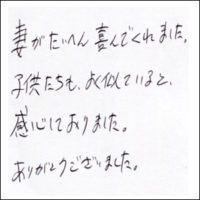 妻がたいへん喜んでくれました。
子供たちも、よく似ていると、
感心しておりました。
ありがとうございました。